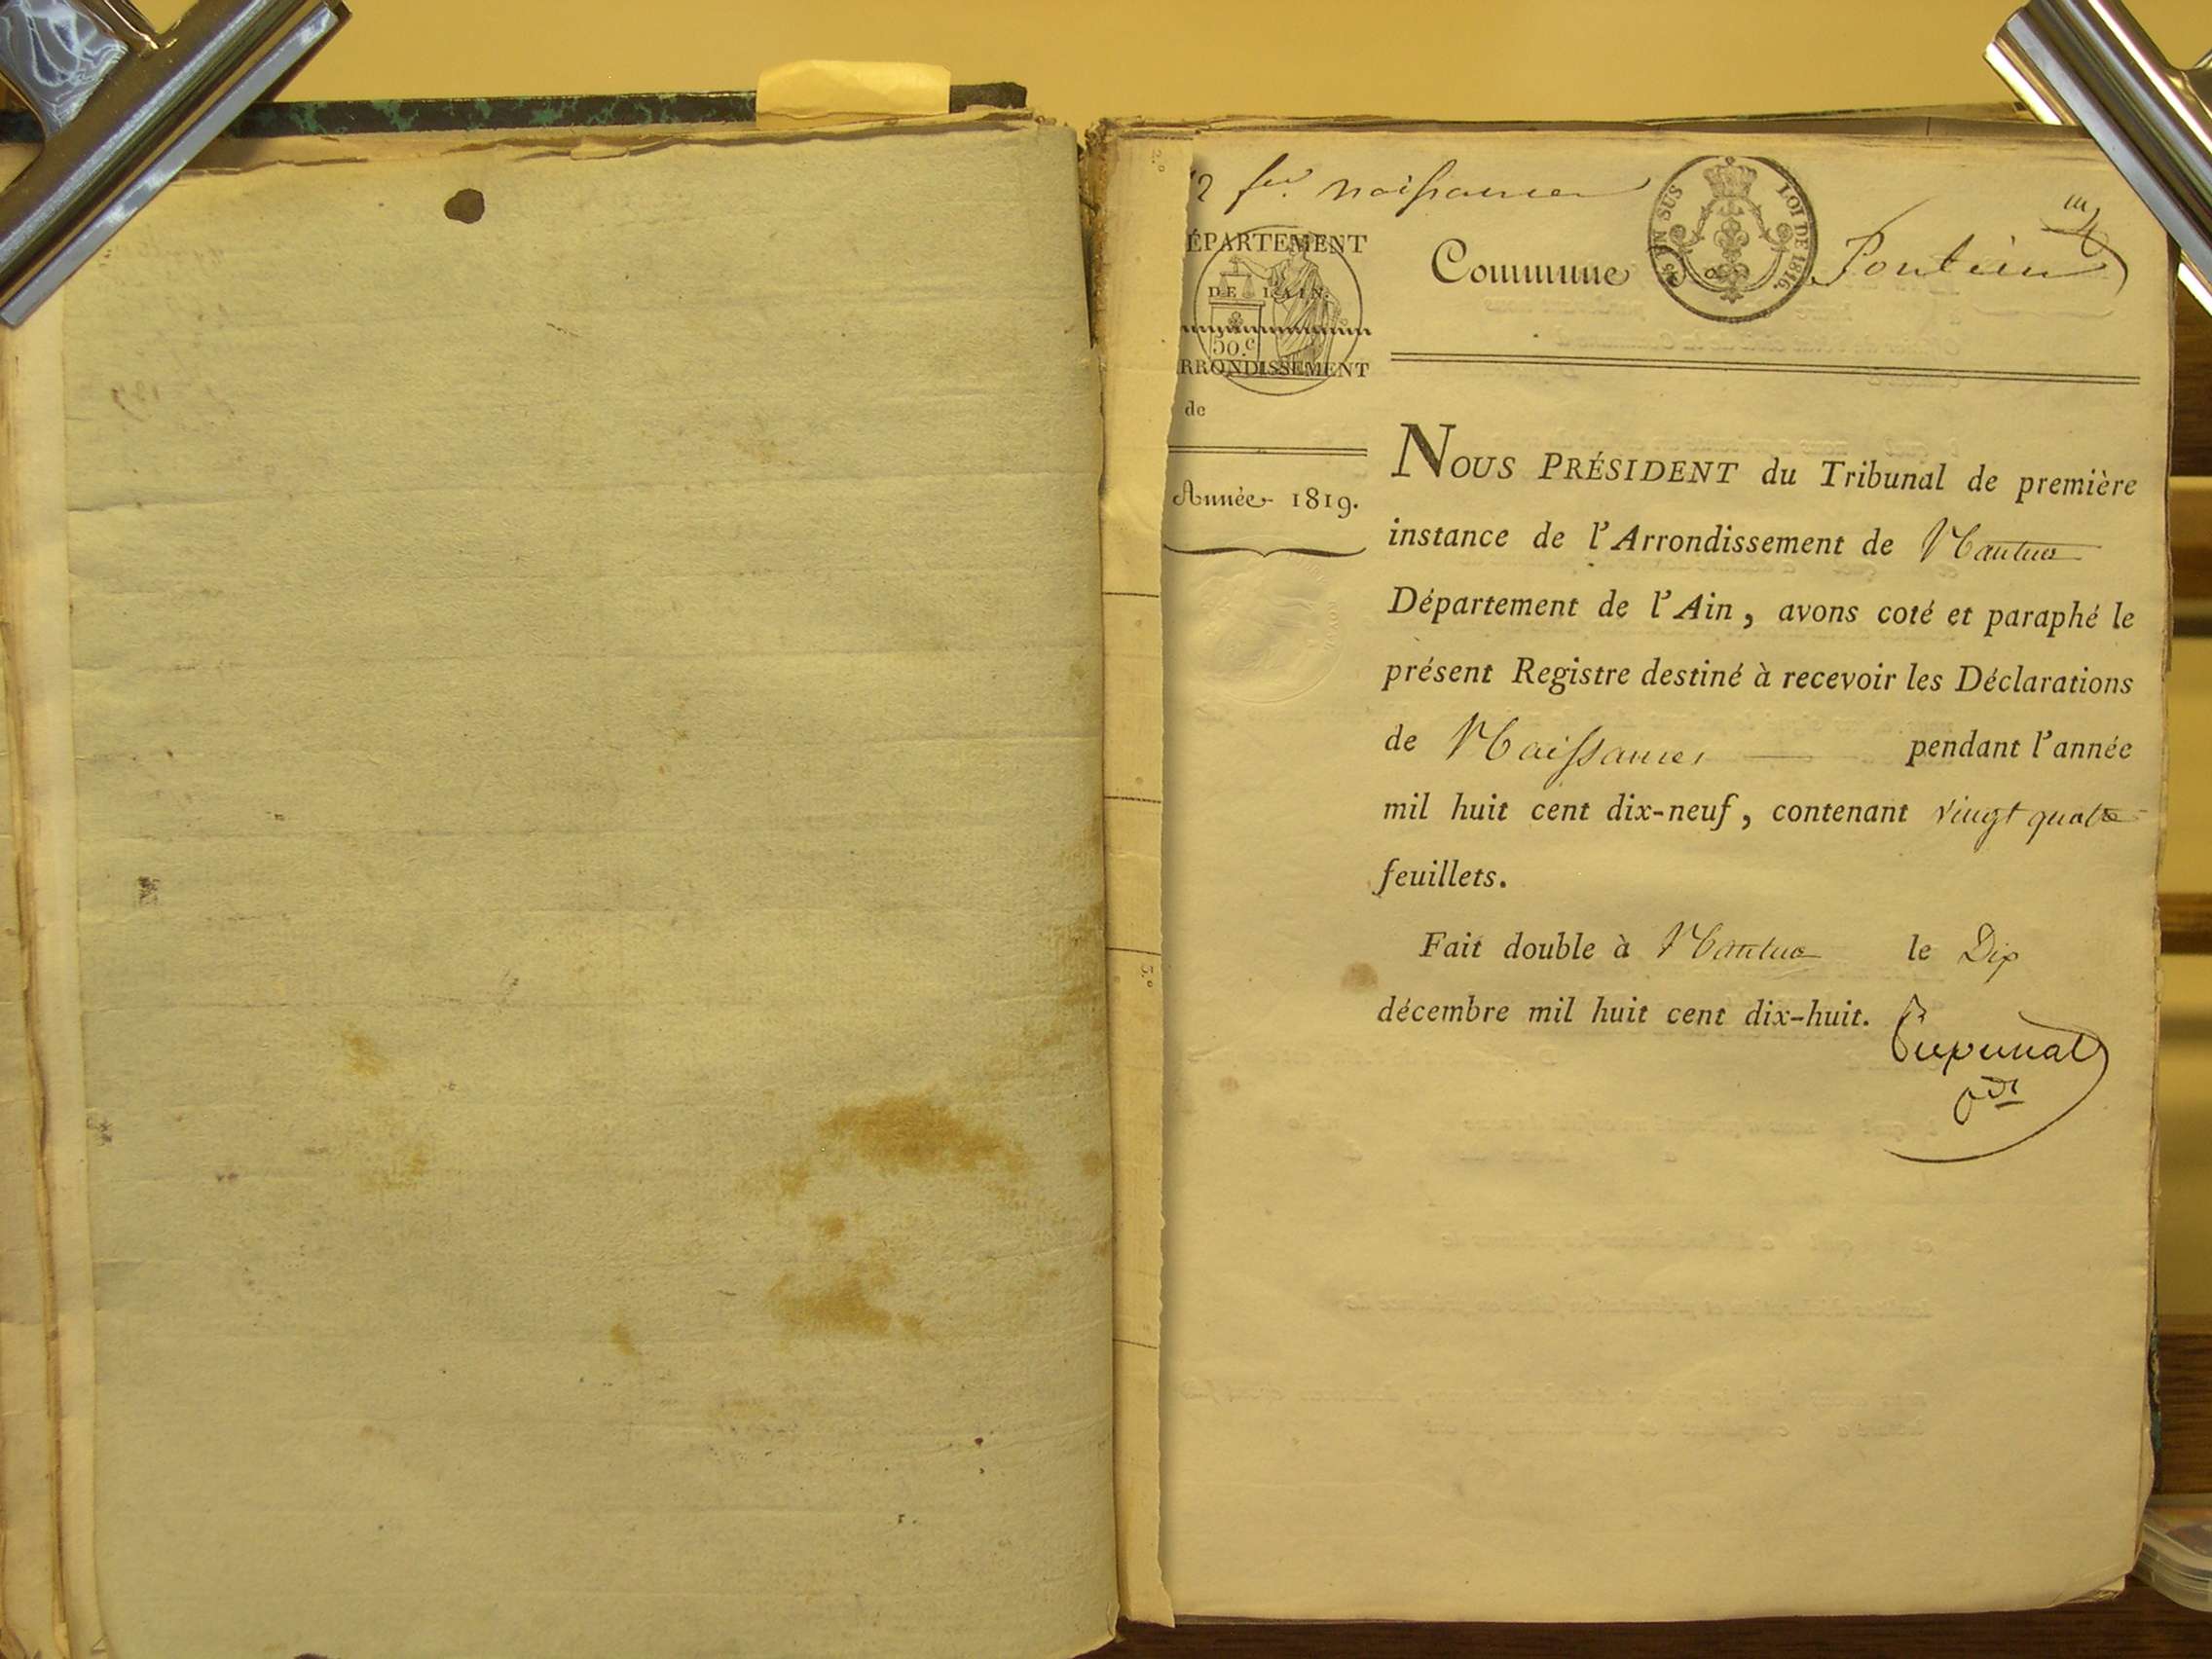 naissances
EN SUS
LOI DE 1816.
ÉPARTEMENT
DE L'AIN.
50.c
RRONDISSEMENT
de
Commune de
Année 1819.
NOUS PRÉSIDENT du Tribunal de première
instance de l'Arrondissement de Nantua
Département de l'Ain, avons coté et paraphé le
présent Registre destiné à recevoir les Déclarations
de Naissances pendant l'année
mil huit cent dix-neuf, contenant vingt quatre
feuillets.
Fait double à Nantua le Dix
décembre mil huit cent dix-huit.